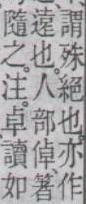 謂殊絕也。亦作
遠也。人部倬箸
隨之。注。卓讀如